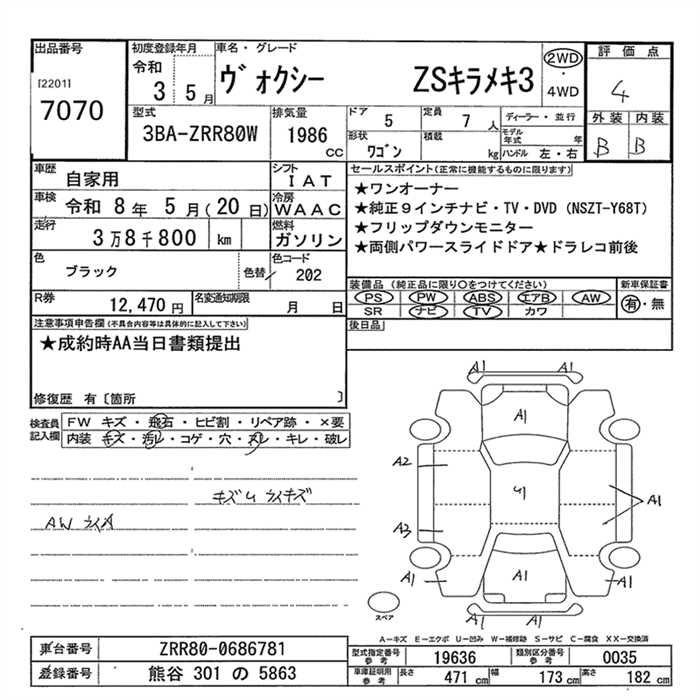 出品番号
[2201]
7070
初度登録年月
令和
3 5月
車名・グレード
ヴォクシー ZSキラメキ3
2WD
・
4WD
評価点
4
外装 内装
B B
型式
3BA-ZRR80W
排気量
1986 CC
ドア 5
定員 7 人
ディーラー・並行
形状 ワゴン
積載 kg
モデル年式 年
ハンドル 左・右
車歴 自家用
シフト IAT
車検 令和 8年 5月(20日)
冷房 WAAC
走行 3万8千800 km
燃料 ガソリン
色 ブラック
色替/
色コード 202
R券 12,470円
名変通知期限 月 日
セールスポイント(正常に機能するものに限ります)
★ワンオーナー
★純正9インチナビ・TV・DVD(NSZT-Y68T)
★フリップダウンモニター
★両側パワースライドドア★ドラレコ前後
装備品(純正品に限り○をつけてください)
新車保証書
PS PW ABS エアB AW
SR ナビ TV カワ
有・無
後日品
注意事項申告欄(不具合内容等は具体的に記入して下さい)
★成約時AA当日書類提出
修復歴 有〔箇所 〕
検査員記入欄
FW キズ・飛石・ヒビ割・リペア跡・×要
内装 キズ・汚レ・コゲ・穴・スレ・キレ・破レ
キズU ライキズ
AW ライA
A1
A1
A1
A2
U1
A1
A3
A1
A1
A1
A1
A1
スペア
A-キズ E-エクボ U-凹み W-補修跡 S-サビ C-腐食 XX-交換済
車台番号 ZRR80-0686781
登録番号 熊谷 301 の 5863
型式指定番号 参考 19636
類別区分番号 参考 0035
車庫証明用 参考 長さ 471 cm 幅 173 cm 高さ 182 cm